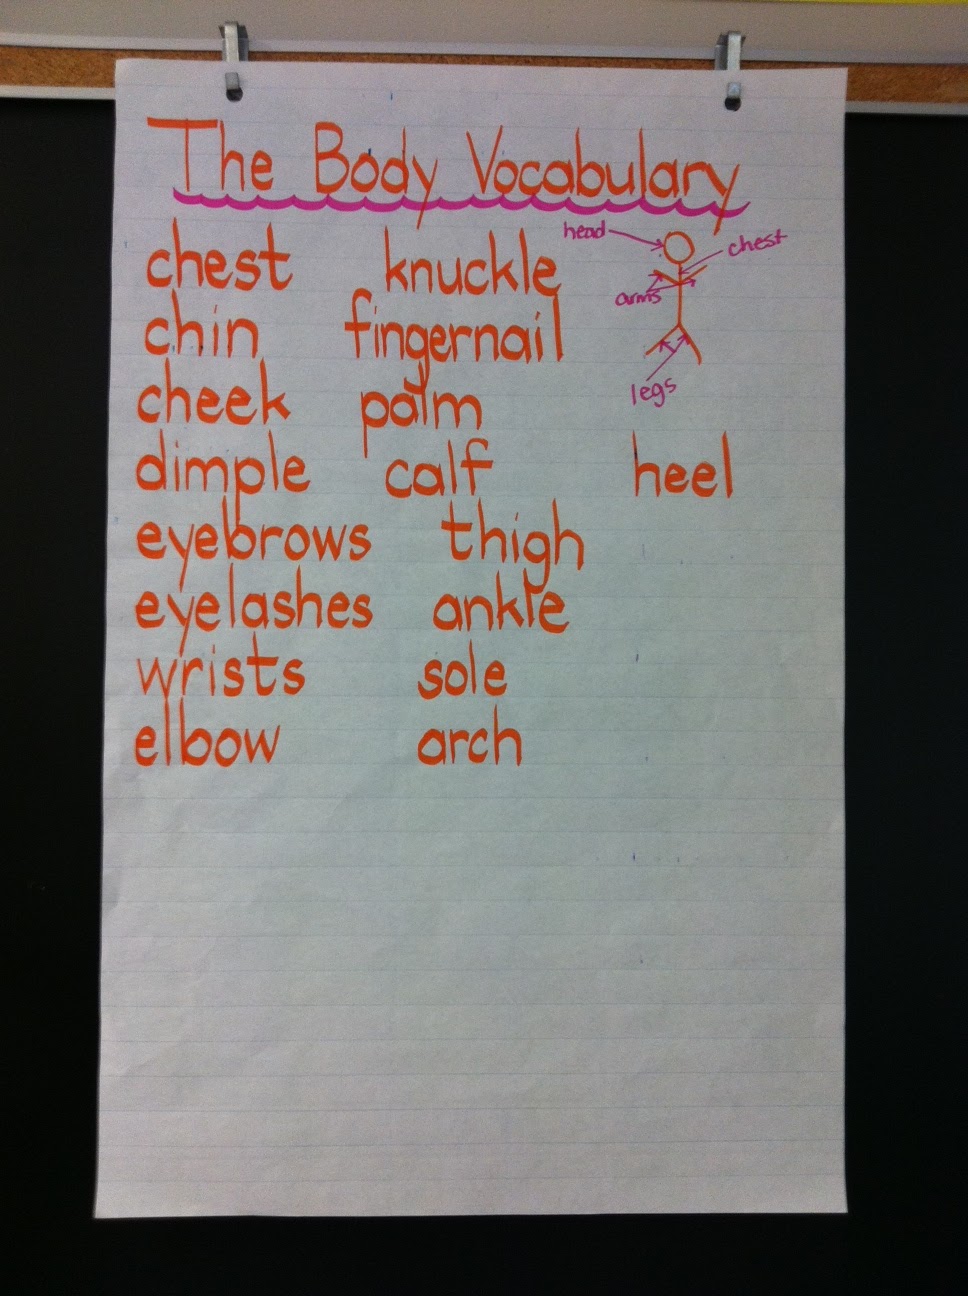 The Body Vocabulary
head
chest
arms
legs
chest knuckle
chin fingernail
cheek palm
dimple calf heel
eyebrows thigh
eyelashes ankle
wrists sole
elbow arch